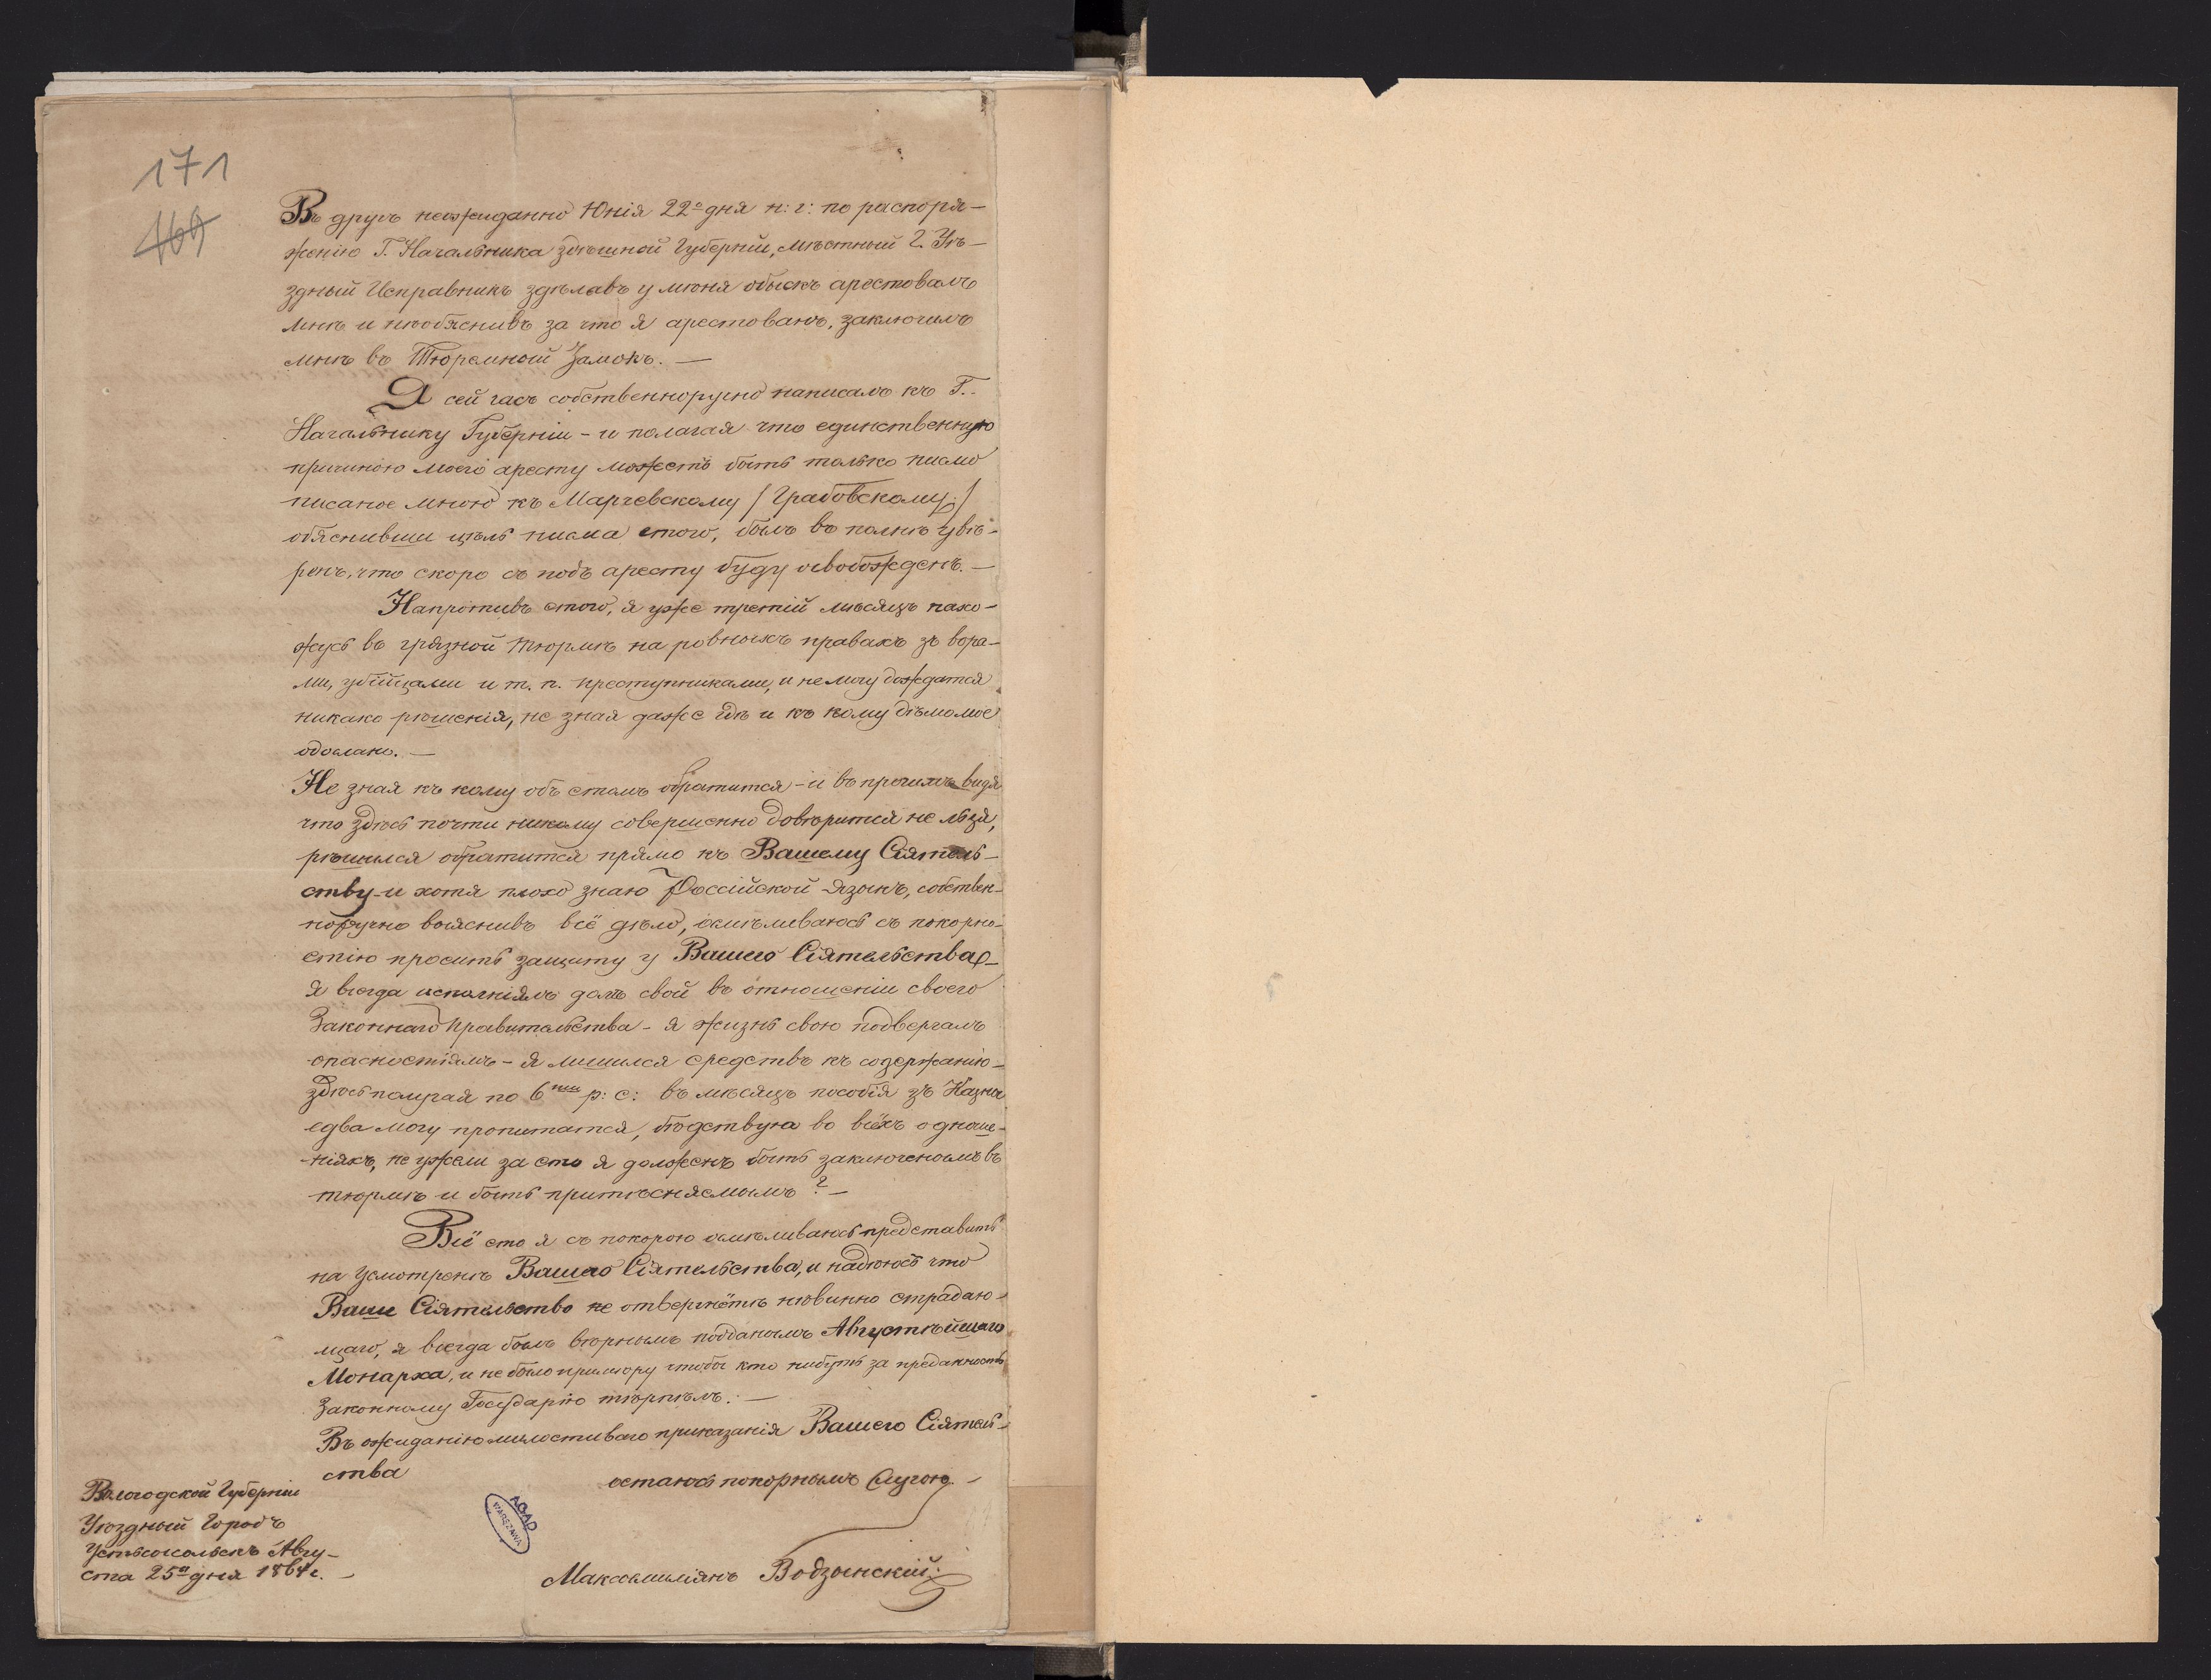 171
169
Въ другъ неожиданно Юнія 22º дня н: г: по распоря-
женію Г. Начальника здѣшной Губерніи, мѣстный Г. Уѣ-
здный Исправникъ здѣлавъ у мѣня обыскъ арестовалъ
мнѣ и необяснивъ за что я арестованъ, заключилъ
мнѣ въ Тюремный Замокъ. —
Я сей часъ собственноручно написалъ къ Г.
Начальнику Губерніи - и полагая что единственную
причиною моего аресту можетъ быть только писмо
писаное мною къ Марчевскому / Грабовскому /
обяснивши цѣль писма етого, былъ въ полнѣ увѣ-
ренъ, что скоро съ подъ аресту буду освобожденъ. —
Напротивъ етого, я уже третій мѣсяцъ нахо-
жусь въ грязной тюрмѣ на ровныхъ правахъ зъ вора-
ми, убійцами и т. п. преступниками, и не могу дождатся
никако рѣшенія, не зная даже гдѣ и къ кому дѣло мое
одослано. —
Не зная къ кому объ етомъ обратится - и въ прочимъ видя
что здѣсь почти никому совершенно довѣрится не льзя,
рѣшился обратится прямо къ Вашему Сіятель-
ству - и хотя плохо знаю Россійской языкъ, собствен-
норучно выяснивъ всё дѣло, осмѣливаюсь съ покорно-
стію просить защиту у Вашего Сіятельства -
я всегда исполніялъ долгъ свой въ отношеніи своего
Законнаго Правительства - я жизнь свою подвергалъ
опасностіямъ - я лишился средствъ къ содержанію -
здѣсь получая по 6 ти р: с: въ мѣсяцъ пособія зъ Казны
едва могу пропитатся, бѣдствуя во всѣхъ одноше-
ніяхъ, не ужели за ето я долженъ быть заключенымъ въ
тюрмѣ и быть притѣсняемымъ? —
Всё ето я съ покорою осмѣливаюсь представить
на Усмотренѣ Вашего Сіятельства, и надѣюсь что
Ваше Сіятельство не отвергнётѣ нѣвинно страдаю-
щаго, я всегда былъ вѣрнымъ подданымъ Августѣйшаго
Монарха, и не было примѣру чтобы кто нибуть за преданность
Законному Государю тѣрпѣлъ. —
Въ ожиданію милостиваго приказанія Вашего Сіятель-
ства
остаюсь покорнымъ Слугою
Вологодской Губерніи
Уѣздный Городъ
Устьсысольскъ Авгу-
ста 25º дня 1864 г. —
AGAD
WARSZAWA
Максымиліянъ Водзынскій